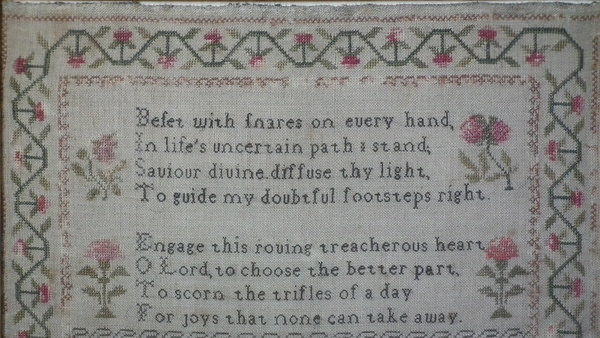 Beſet with ſnares on euery hand,
In life's uncertain path I stand;
Saviour divine diffuse thy light,
To guide my doubtful footsteps right.
Engage this roving treacherous heart
O Lord, to choose the better part,
To scorn the trifles of a day
For joys that none can take away.